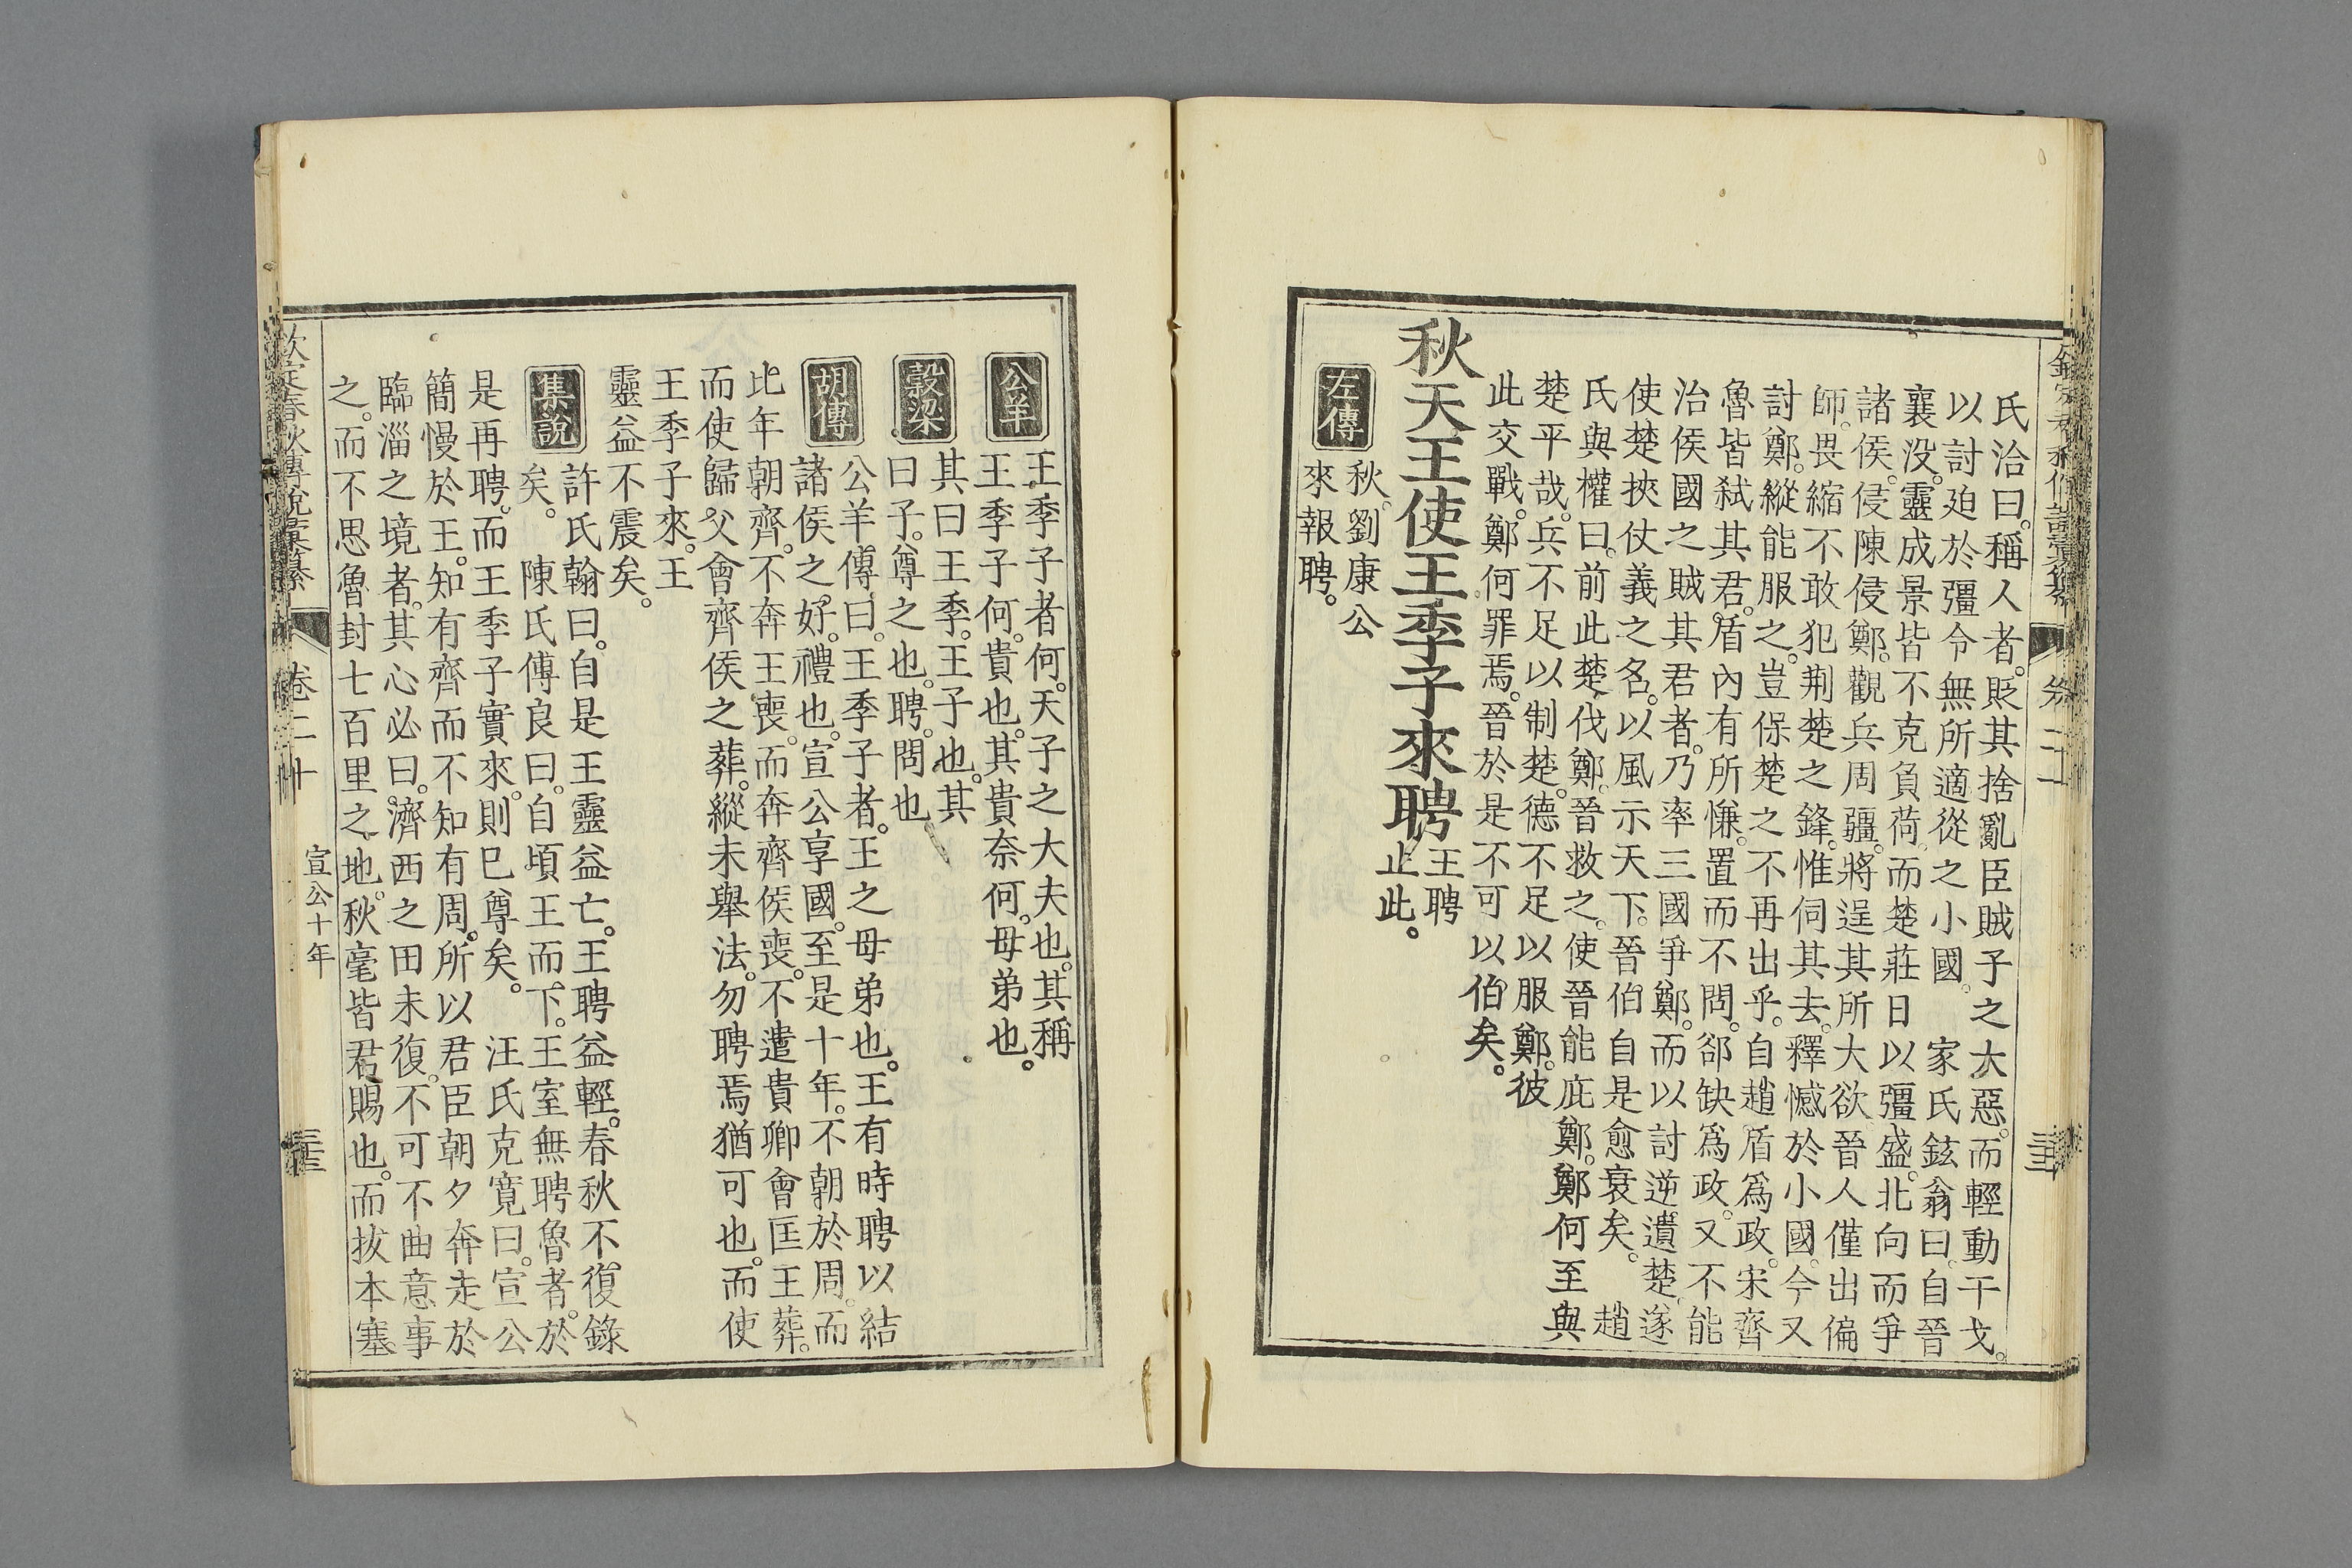 氏洽曰。稱人者。貶其捨亂臣賊子之大惡。而輕動干戈。
以討廹於彊令無所適從之小國。　家氏鉉翁曰。自晉
襄没。靈成景皆不克負荷。而楚莊日以彊盛。北向而爭
諸侯。侵陳侵鄭。觀兵周疆。將逞其所大欲。晉人僅出偏
師。畏縮不敢犯荆楚之鋒。惟伺其去。釋憾於小國。今又
討鄭。縱能服之。豈保楚之不再出乎。自趙盾爲政。宋齊
魯皆弑其君。盾內有所慊。置而不問。郤缺爲政。又不能
治侯國之賊其君者。乃率三國爭鄭。而以討逆遺楚。遂
使楚挾仗義之名。以風示天下。晉伯自是愈衰矣。　趙
氏與權曰。前此楚伐鄭。晉救之。使晉能庇鄭。鄭何至與
楚平哉。兵不足以制楚。德不足以服鄭。彼
此交戰。鄭何罪焉。晉於是不可以伯矣。
秋天王使王季子來聘王聘
止此。
左傳　秋。劉康公
來報聘。
公羊　王季子者何。天子之大夫也。其稱
王季子何。貴也。其貴奈何。母弟也。
穀梁　其曰王季。王子也。其
曰子。尊之也。聘。問也
胡傳　公羊傳曰。王季子者。王之母弟也。王有時聘以結
諸侯之好。禮也。宣公享國。至是十年。不朝於周。而
比年朝齊。不奔王喪。而奔齊侯喪。不遣貴卿會匡王葬。
而使歸父會齊侯之葬。縱未舉法。勿聘焉猶可也。而使
王季子來。王
靈益不震矣。
集說　許氏翰曰。自是王靈益亡。王聘益輕。春秋不復錄
矣。　陳氏傅良曰。自頃王而下。王室無聘魯者。於
是再聘。而王季子實來。則已尊矣。　汪氏克寬曰。宣公
簡慢於王。知有齊而不知有周。所以君臣朝夕奔走於
臨淄之境者。其心必曰。濟西之田未復。不可不曲意事
之。而不思魯封七百里之地。秋毫皆君賜也。而拔本塞
欽定春秋傳說彙纂　卷二十　宣公十年